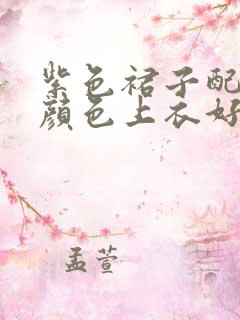 紫色裙子配
颜色上衣好
孟萱